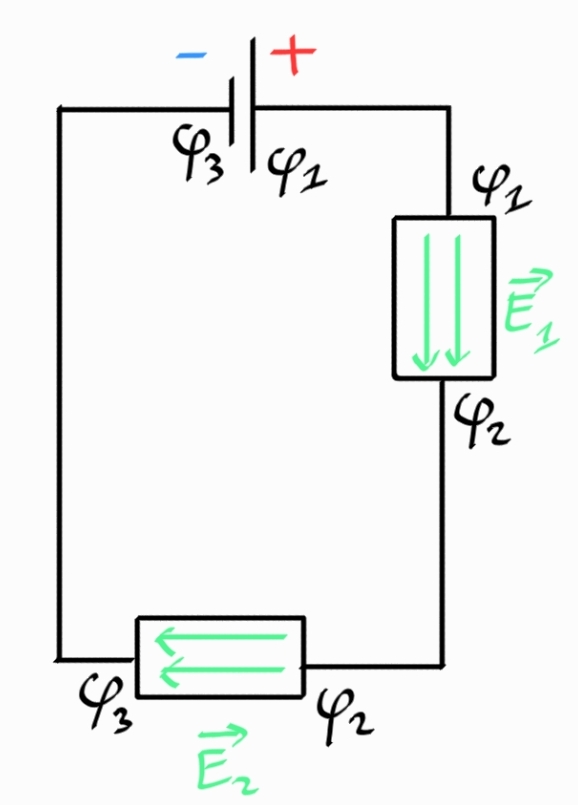 - +
φ3 φ1
φ1
E1
φ2
φ3 φ2
E2